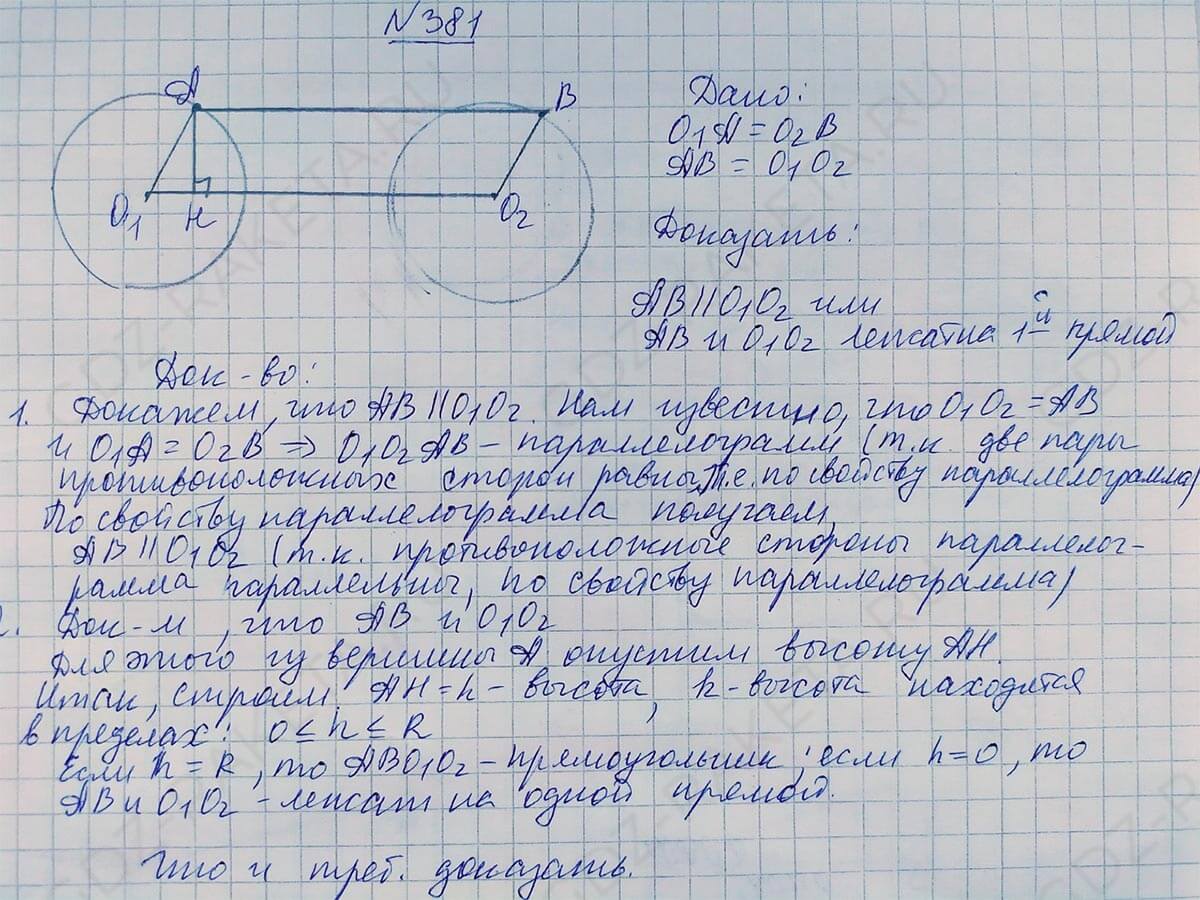 №381
A
B
O1
H
O2
Дано:
O1A = O2B
AB = O1O2
Доказать:
AB || O1O2 или
AB и O1O2 лежат на 1-й прямой
Док-во:
1. Докажем, что AB || O1O2. Нам известно, что O1O2 = AB
и O1A = O2B ⇒ O1O2AB – параллелограмм (т.к. две пары
противоположных сторон равны, т.е. по свойству параллелограмма)
По свойству параллелограмма получаем,
AB || O1O2 (т.к. противоположные стороны параллелог-
рамма параллельны, по свойству параллелограмма)
2. Док-м, что AB и O1O2
Для этого из вершины A опустим высоту AH.
Итак, строим AH = h – высота, h – высота находится
в пределах: 0 ≤ h ≤ R
Если h = R, то ABO1O2 – прямоугольник; если h = 0, то
AB и O1O2 – лежат на одной прямой.
Что и треб. доказать.
GDZ-RAKETA.RU